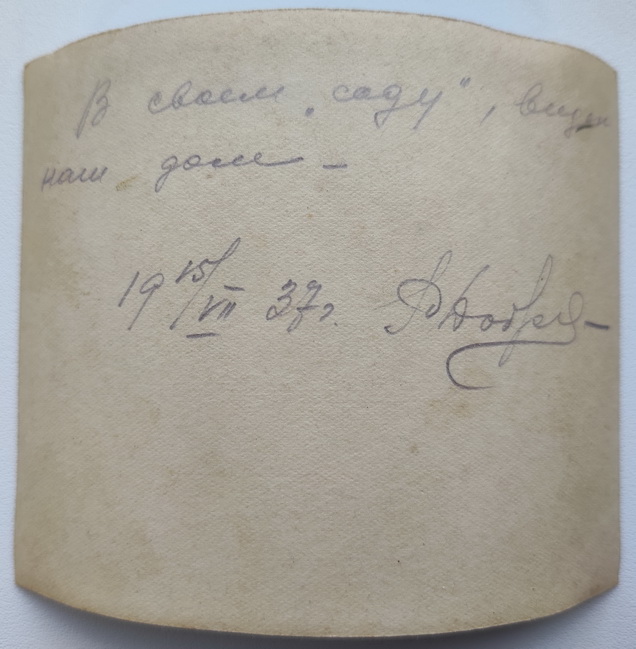 В своем „саду“, виден
наш дом –
19 15/VII 37г.